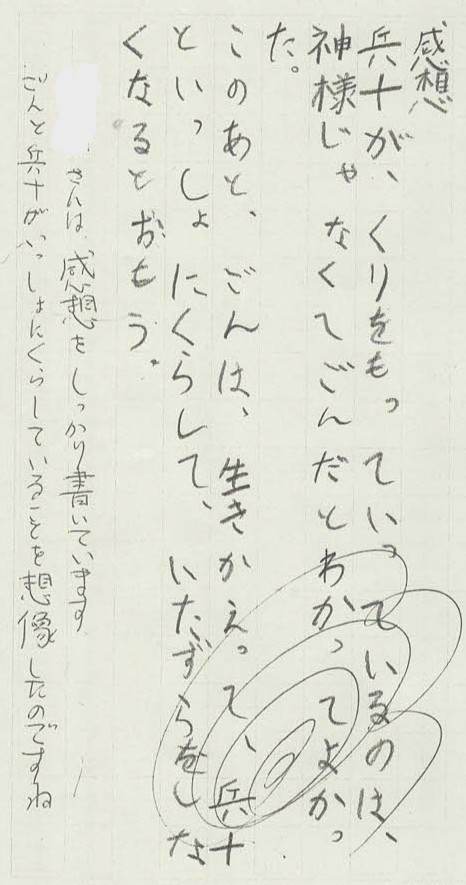 感想
兵十が、くりをもっていっているのは、
神様じゃなくてごんだとわかってよかっ
た。
このあと、ごんは、生きかえって、兵十
といっしょにくらして、いたずらをしな
くなるとおもう。
さんは、感想をしっかり書いています
ごんと兵十がいっしょにくらしていることを想像したのですね